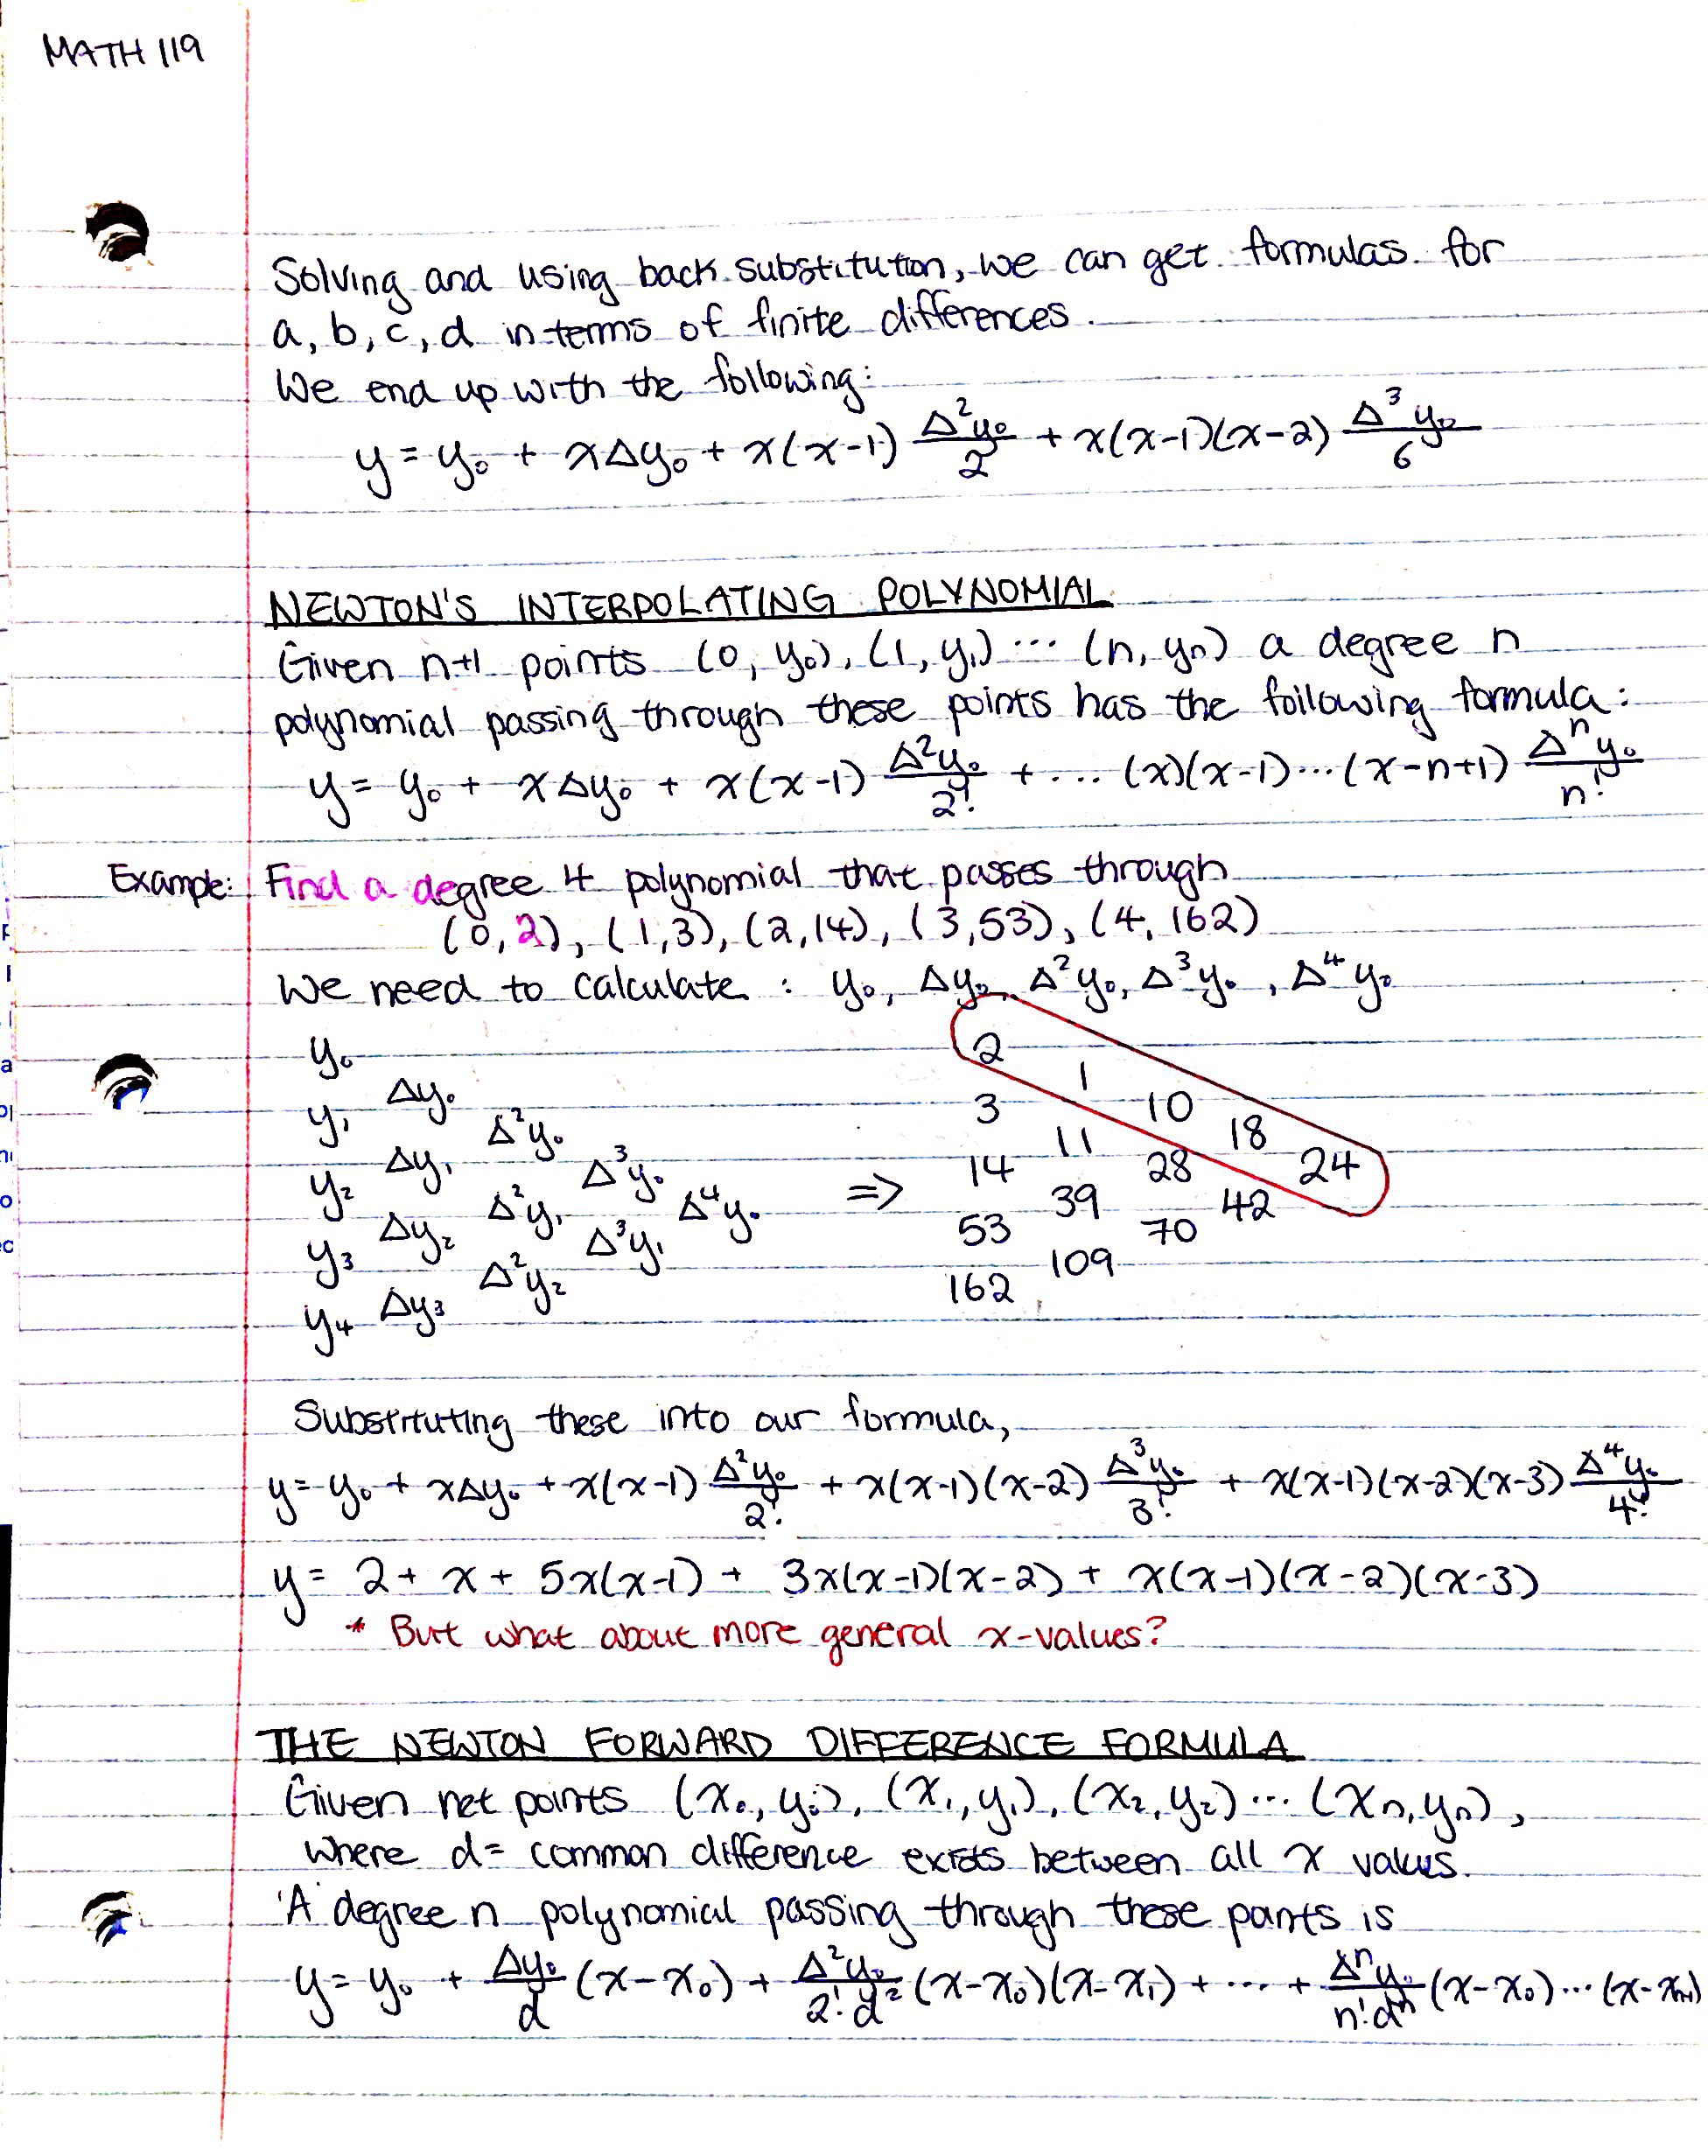 MATH 119
Solving and using back substitution, we can get formulas for
a, b, c, d in terms of finite differences.
We end up with the following:
y = y₀ + xΔy₀ + x(x-1) Δ²y₀/2 + x(x-1)(x-2) Δ³y₀/6
NEWTON'S INTERPOLATING POLYNOMIAL
Given n+1 points (0, y₀), (1, y₁) ... (n, yₙ) a degree n
polynomial passing through these points has the following formula:
y = y₀ + xΔy₀ + x(x-1) Δ²y₀/2! + ... (x)(x-1)...(x-n+1) Δⁿy₀/n!
Example: Find a degree 4 polynomial that passes through
(0,2), (1,3), (2,14), (3,53), (4,162)
We need to calculate : y₀, Δy₀, Δ²y₀, Δ³y₀, Δ⁴y₀
y₀ 2
Δy₀ 1
y₁ Δ²y₀ 3 10
Δy₁ Δ³y₀ 11 18
y₂ Δ²y₁ Δ⁴y₀ => 14 28 24
Δy₂ Δ³y₁ 39 42
y₃ Δ²y₂ 53 70
Δy₃ 109
y₄ 162
Substituting these into our formula,
y = y₀ + xΔy₀ + x(x-1) Δ²y₀/2! + x(x-1)(x-2) Δ³y₀/3! + x(x-1)(x-2)(x-3) Δ⁴y₀/4!
y = 2 + x + 5x(x-1) + 3x(x-1)(x-2) + x(x-1)(x-2)(x-3)
* But what about more general x-values?
THE NEWTON FORWARD DIFFERENCE FORMULA
Given n+1 points (x₀, y₀), (x₁, y₁), (x₂, y₂) ... (xₙ, yₙ),
where d = common difference exists between all x values.
A degree n polynomial passing through these points is
y = y₀ + Δy₀/d (x-x₀) + Δ²y₀/2!d² (x-x₀)(x-x₁) + ... + Δⁿy₀/n!dⁿ (x-x₀)...(x-xₙ₋₁)